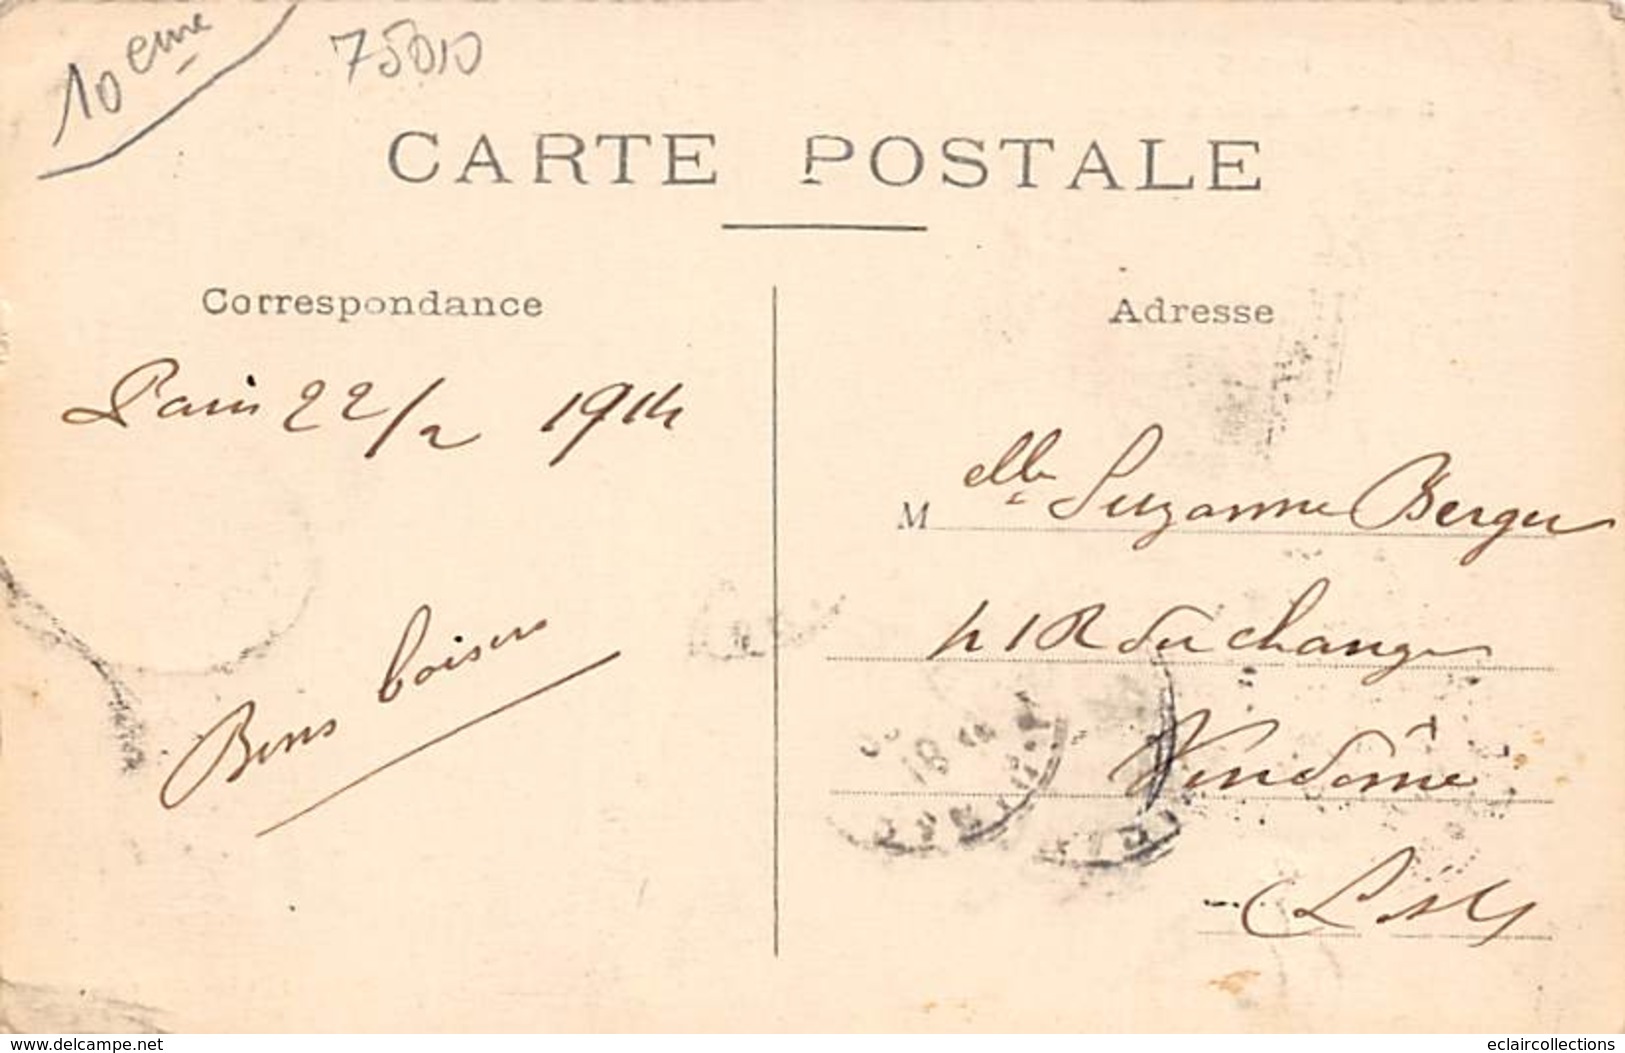 10 eme
75010
CARTE POSTALE
Correspondance
Paris 22/2 1914
Bons baisers
Adresse
M elle Suzanne Berger
41 R du change
Vendôme
L & Ch
www.delcampe.net
eclaircollections